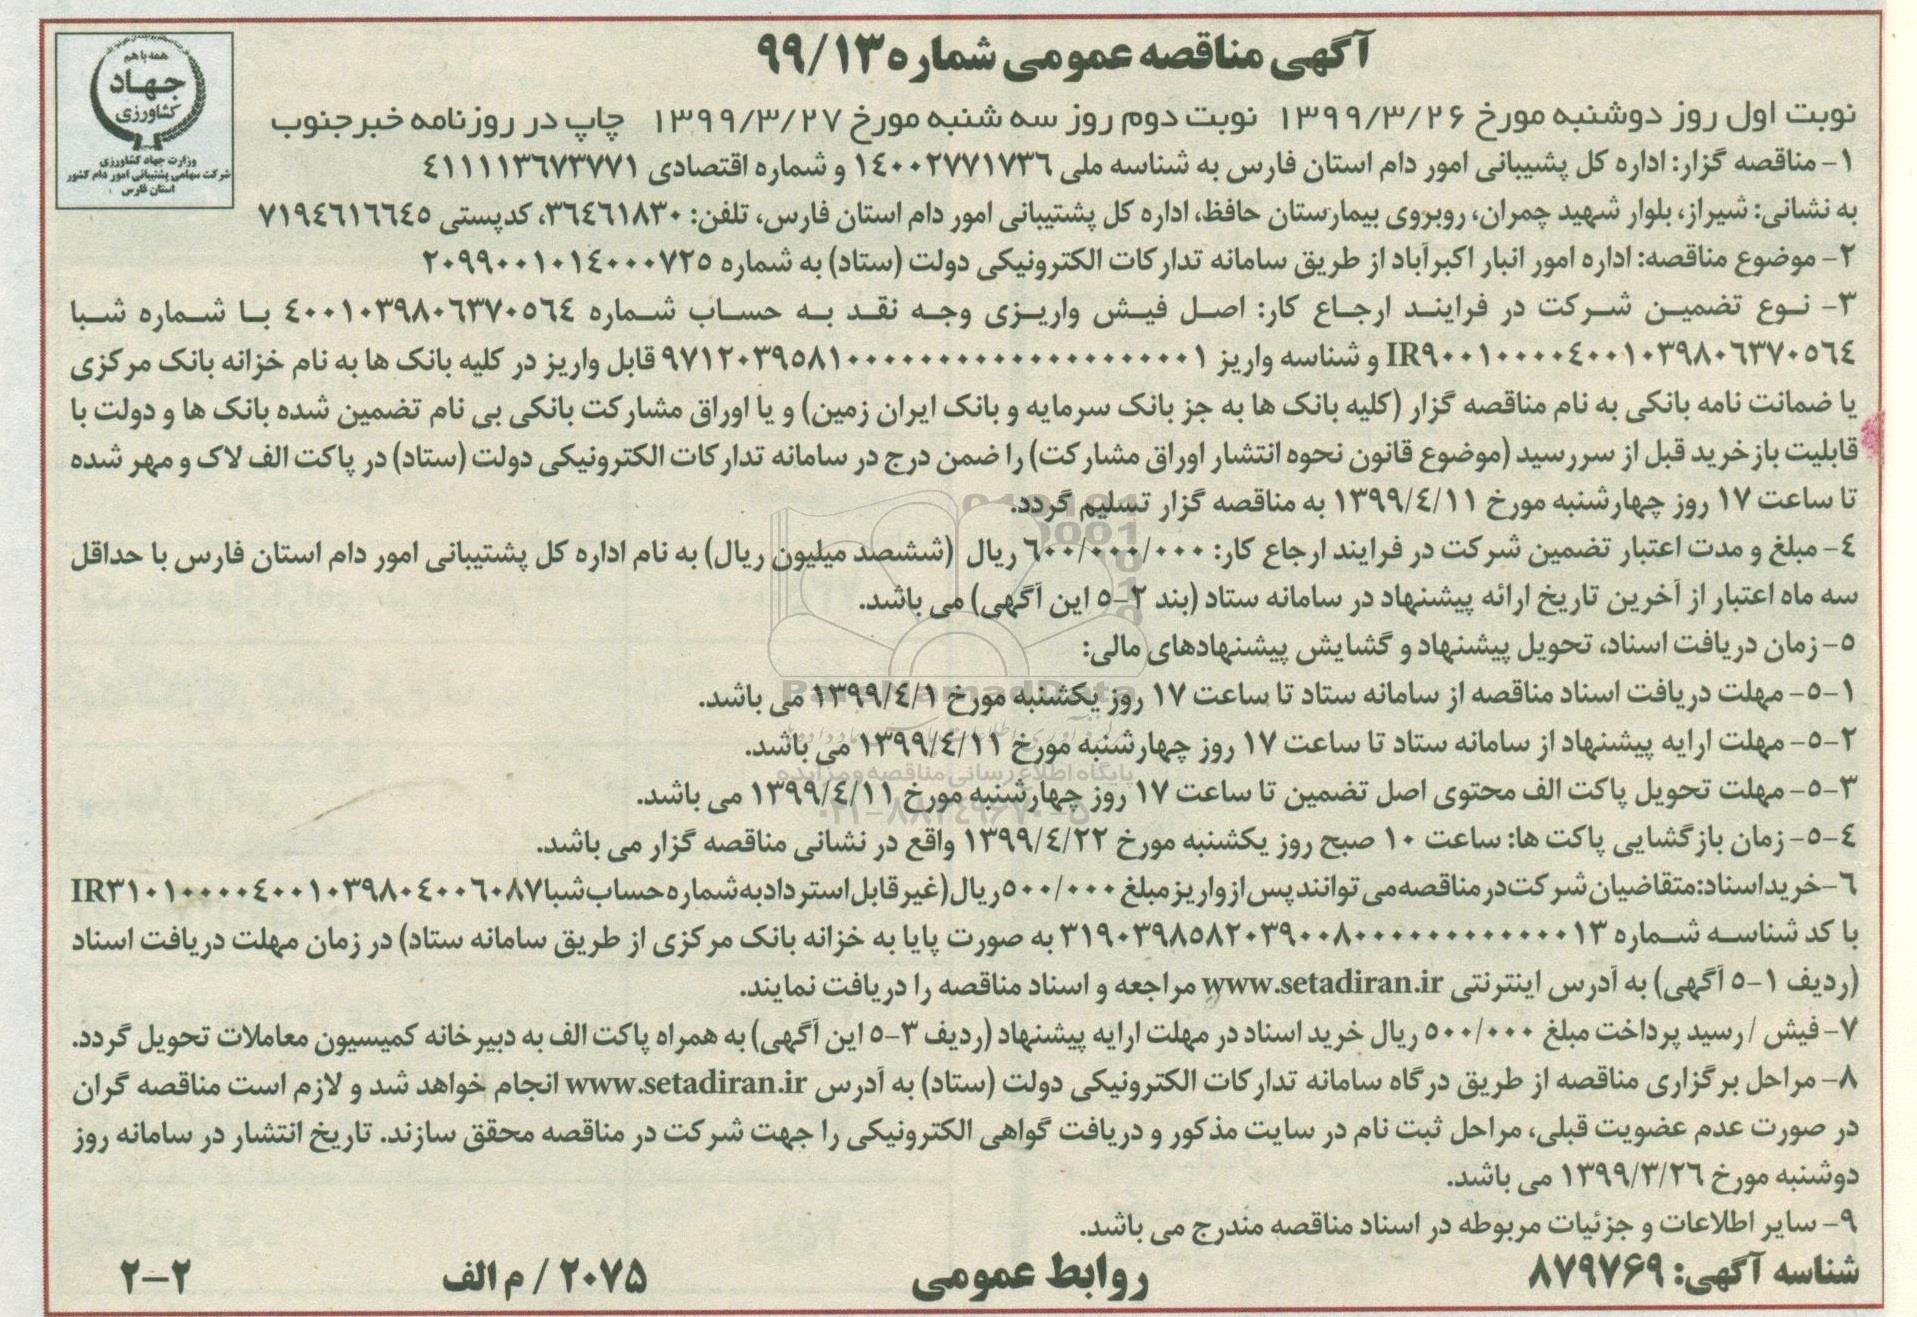 آگهی مناقصه عمومی شماره ۹۹/۱۳
همه با هم
جهاد
کشاورزی
وزارت جهاد کشاورزی
شرکت سهامی پشتیبانی امور دام کشور
استان فارس
نوبت اول روز دوشنبه مورخ ۱۳۹۹/۳/۲۶ نوبت دوم روز سه شنبه مورخ ۱۳۹۹/۳/۲۷ چاپ در روزنامه خبرجنوب
۱- مناقصه گزار: اداره کل پشیبانی امور دام استان فارس به شناسه ملی ۱۴۰۰۲۷۷۱۷۳۶ و شماره اقتصادی ۴۱۱۱۱۳۶۷۳۷۷۱
به نشانی: شیراز، بلوار شهید چمران، روبروی بیمارستان حافظ، اداره کل پشتیبانی امور دام استان فارس، تلفن: ۳۶۴۶۱۸۳۰، کدپستی ۷۱۹۴۶۱۶۶۴۵
۲- موضوع مناقصه: اداره امور انبار اکبرآباد از طریق سامانه تدارکات الکترونیکی دولت (ستاد) به شماره ۲۰۹۹۰۰۱۰۱۴۰۰۰۷۲۵
۳- نوع تضمین شرکت در فرایند ارجاع کار: اصل فیش واریزی وجه نقد به حساب شماره ۴۰۰۱۰۳۹۸۰۶۳۷۰۵۶۴ با شماره شبا
IR۹۰۰۱۰۰۰۰۴۰۰۱۰۳۹۸۰۶۳۷۰۵۶۴ و شناسه واریز قابل واریز در کلیه بانک ها به نام خزانه بانک مرکزی
یا ضمانت نامه بانکی به نام مناقصه گزار (کلیه بانک ها به جز بانک سرمایه و بانک ایران زمین) و یا اوراق مشارکت بانکی بی نام تضمین شده بانک ها و دولت با
قابلیت بازخرید قبل از سررسید (موضوع قانون نحوه انتشار اوراق مشارکت) را ضمن درج در سامانه تدارکات الکترونیکی دولت (ستاد) در پاکت الف لاک و مهر شده
تا ساعت ۱۷ روز چهارشنبه مورخ ۱۳۹۹/۴/۱۱ به مناقصه گزار تسلیم گردد.
۴- مبلغ و مدت اعتبار تضمین شرکت در فرایند ارجاع کار: ۶۰۰/۰۰۰/۰۰۰ ریال (ششصد میلیون ریال) به نام اداره کل پشتیبانی امور دام استان فارس با حداقل
سه ماه اعتبار از آخرین تاریخ ارائه پیشنهاد در سامانه ستاد (بند ۲-۵ این آگهی) می باشد.
۵- زمان دریافت اسناد، تحویل پیشنهاد و گشایش پیشنهادهای مالی:
۱-۵- مهلت دریافت اسناد مناقصه از سامانه ستاد تا ساعت ۱۷ روز یکشنبه مورخ ۱۳۹۹/۴/۱ می باشد.
۲-۵- مهلت ارایه پیشنهاد از سامانه ستاد تا ساعت ۱۷ روز چهارشنبه مورخ ۱۳۹۹/۴/۱۱ می باشد.
پایگاه اطلاع رسانی مناقصه و مزایده
۳-۵- مهلت تحویل پاکت الف محتوی اصل تضمین تا ساعت ۱۷ روز چهارشنبه مورخ ۱۳۹۹/۴/۱۱ می باشد.
۰۲۱-۸۸۳۴۹۶۷۰-۵
۴-۵- زمان بازگشایی پاکت ها: ساعت ۱۰ صبح روز یکشنبه مورخ ۱۳۹۹/۴/۲۲ واقع در نشانی مناقصه گزار می باشد.
۶- خرید اسناد: متقاضیان شرکت در مناقصه می توانند پس از واریز مبلغ ۵۰۰/۰۰۰ ریال (غیر قابل استرداد به شماره حساب شبا IR۳۱۰۱۰۰۰۰۴۰۰۱۰۳۹۸۰۴۰۰۶۰۸۷
با کد شناسه شماره به صورت پایا به خزانه بانک مرکزی از طریق سامانه ستاد) در زمان مهلت دریافت اسناد
(ردیف ۱-۵ آگهی) به آدرس اینترنتی www.setadiran.ir مراجعه و اسناد مناقصه را دریافت نمایند.
۷- فیش / رسید پرداخت مبلغ ۵۰۰/۰۰۰ ریال خرید اسناد در مهلت ارایه پیشنهاد (ردیف ۳-۵ این آگهی) به همراه پاکت الف به دبیرخانه کمیسیون معاملات تحویل گردد.
۸- مراحل برگزاری مناقصه از طریق درگاه سامانه تدارکات الکترونیکی دولت (ستاد) به آدرس www.setadiran.ir انجام خواهد شد و لازم است مناقصه گران
در صورت عدم عضویت قبلی، مراحل ثبت نام در سایت مذکور و دریافت گواهی الکترونیکی را جهت شرکت در مناقصه محقق سازند. تاریخ انتشار در سامانه روز
دوشنبه مورخ ۱۳۹۹/۳/۲۶ می باشد.
۹- سایر اطلاعات و جزئیات مربوطه در اسناد مناقصه مندرج می باشد.
شناسه آگهی: ۸۷۹۷۶۹ روابط عمومی ۲۰۷۵ / م الف ۲-۲